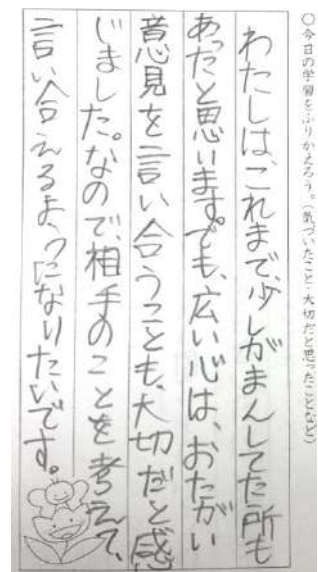 ○今日の学習をふりかえろう。(気づいたこと・大切だと思ったことなど)
わたしは、これまで、少しがまんしてた所も
あったと思います。でも、広い心は、おたがい
意見を言い合うことも、大切だと感
じました。なので、相手のことを考えて、
言い合えるようになりたいです。